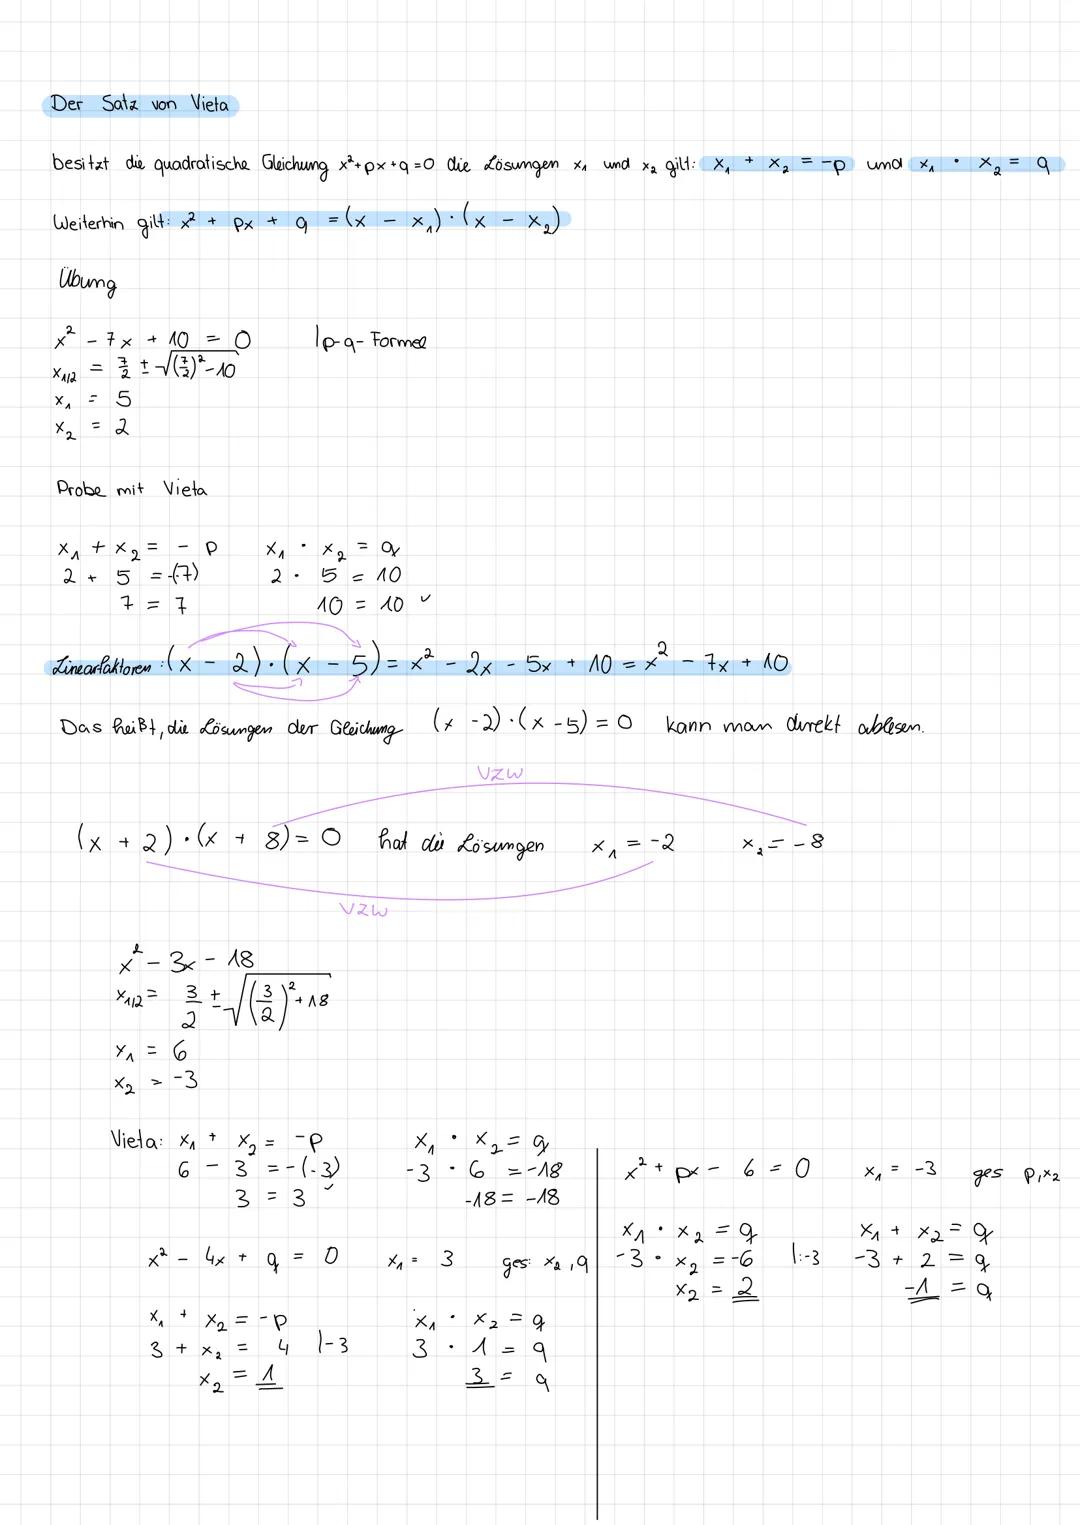 Der Satz von Vieta
besitzt die quadratische Gleichung x²+px+q=0 die Lösungen x₁ und x₂ gilt: x₁ + x₂ = -p und x₁ · x₂ = q
Weiterhin gilt: x² + px + q = (x - x₁) · (x - x₂)
Übung
x² - 7x + 10 = 0 |p-q-Formel
x₁/₂ = 7/2 ± √((7/2)² - 10)
x₁ = 5
x₂ = 2
Probe mit Vieta
x₁ + x₂ = - p x₁ · x₂ = q
2 + 5 = -(-7) 2 · 5 = 10
7 = 7 10 = 10 ✓
Linearfaktoren: (x - 2) · (x - 5) = x² - 2x - 5x + 10 = x² - 7x + 10
Das heißt, die Lösungen der Gleichung (x -2) · (x -5) = 0 kann man direkt ablesen.
VZW
(x + 2) · (x + 8) = 0 hat die Lösungen x₁ = -2 x₂ = -8
VZW
x² - 3x - 18
x₁/₂ = 3/2 ± √((3/2)² + 18)
x₁ = 6
x₂ = -3
Vieta: x₁ + x₂ = -p x₁ · x₂ = q
6 - 3 = -(-3) -3 · 6 = -18
3 = 3 ✓ -18 = -18
x² - 4x + q = 0 x₁ = 3 ges: x₂, q
x₁ + x₂ = -p x₁ · x₂ = q
3 + x₂ = 4 |-3 3 · 1 = q
x₂ = 1 3 = q
x² + px - 6 = 0 x₁ = -3 ges p, x₂
x₁ · x₂ = q x₁ + x₂ = q
-3 · x₂ = -6 |:-3 -3 + 2 = q
x₂ = 2 -1 = q